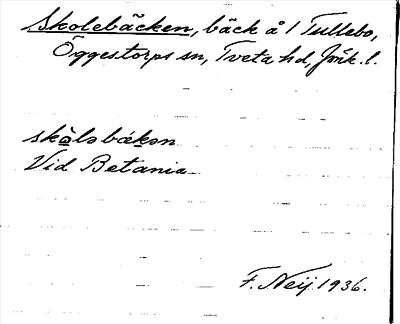 Skolebäcken, bäck å 1 Tullebo,
Öggestorps sn, Tveta hd, Jönk. l.
skòləbǽkən
Vid Betania
F. Neij 1936.